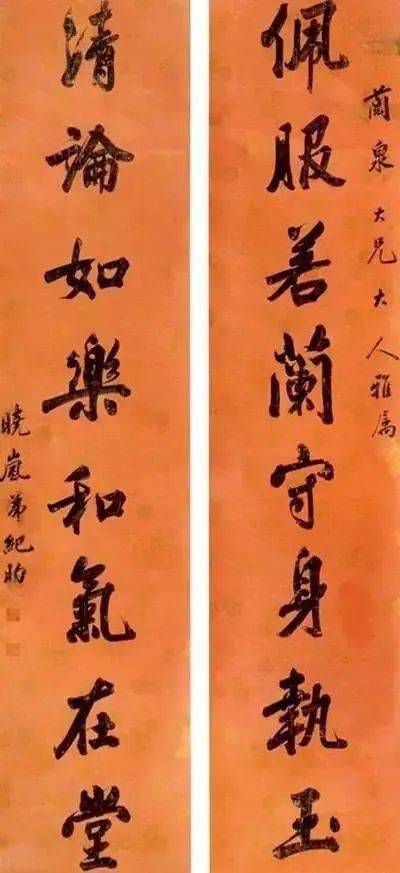 茼泉大兄大人雅属
佩服若蘭守身執玉
清論如樂和氣在堂
曉嵐弟紀昀